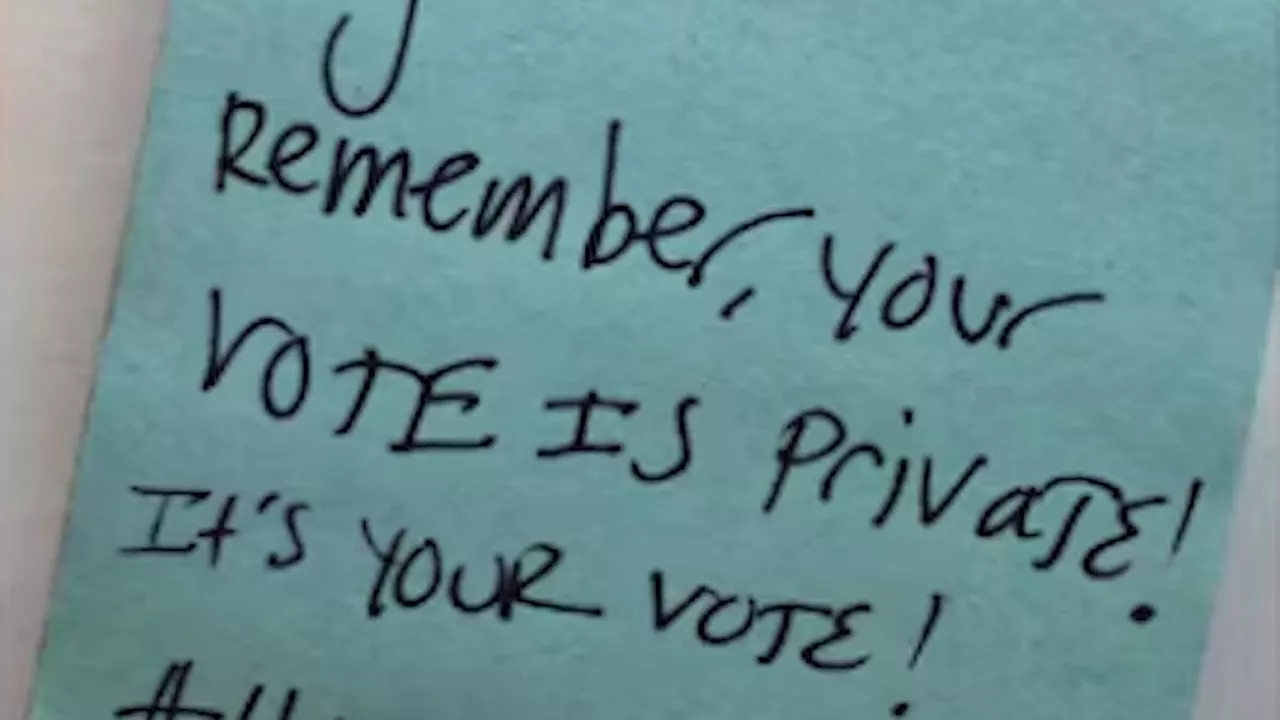 Remember, your
VOTE IS PrivaTE!
It's YOUR VOTE!